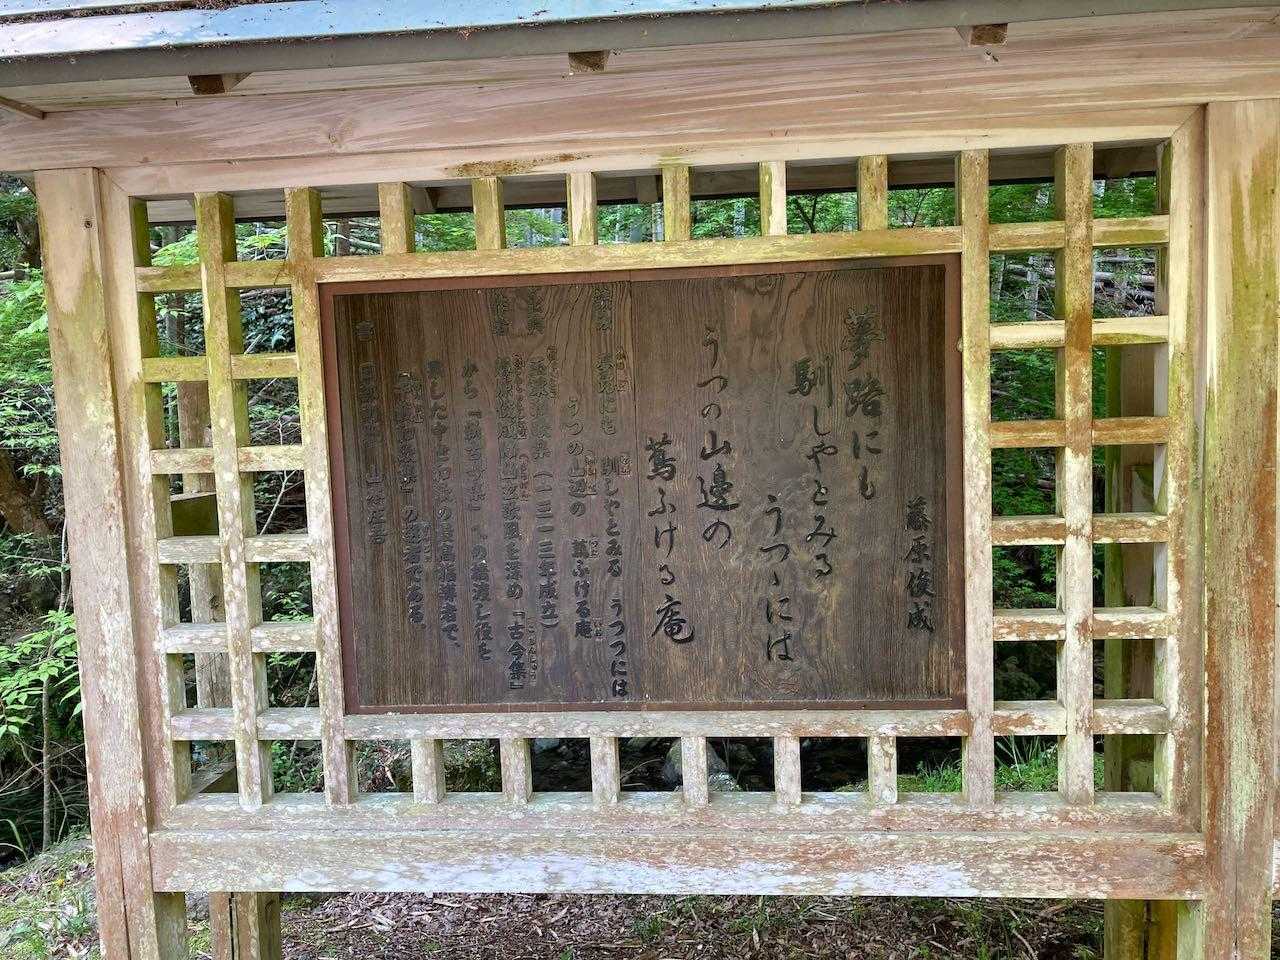 藤原俊成
夢路にも
馴しやとみる
うつゝには
うつの山邊の
蔦ふける庵
読み 夢路にも 馴しやとみる うつつには
うつの山辺の 蔦ふける庵
出典 玉葉和歌集（一三一三年成立）
作者 藤原俊成 歌風を深め『古今集』
から『新古今集』への橋渡し役を
果した中世和歌の最高指導者で、
『千載和歌集』の選者である。
書